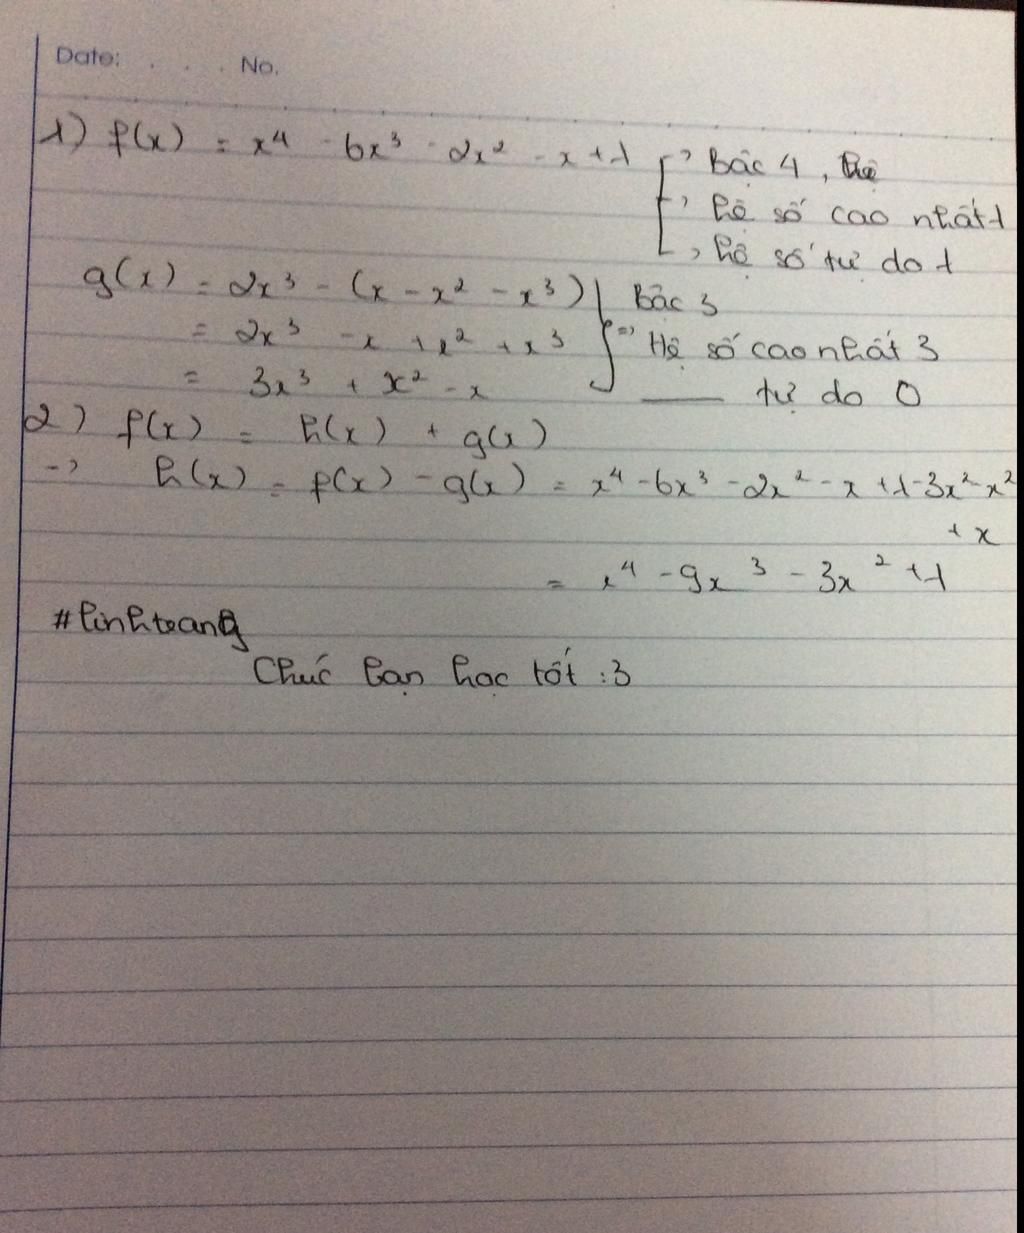 Date: . . . No.
1) f(x) = x⁴ - 6x³ - 2x² - x + 1 → Bậc 4,
→ hệ số cao nhất 1
→ hệ số tự do 1
g(x) = 2x³ - (x - x² - x³) Bậc 3
= 2x³ - x + x² + x³ => Hệ số cao nhất 3
= 3x³ + x² - x —— tự do 0
2) f(x) = h(x) + g(x)
-> h(x) = f(x) - g(x) = x⁴ - 6x³ - 2x² - x + 1 - 3x² - x²
+ x
= x⁴ - 9x³ - 3x² + 1
#linhtrang
Chúc bạn học tốt :3